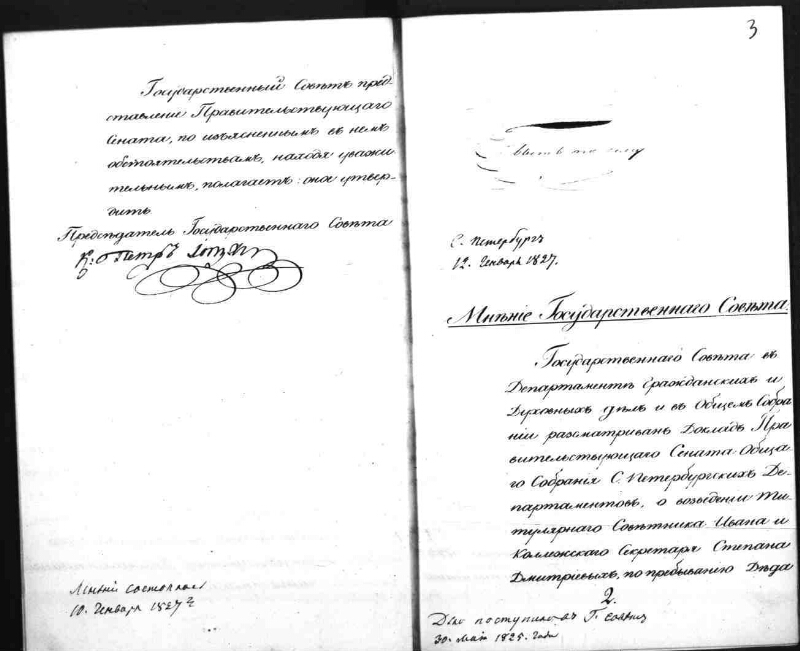 Государственный Совѣтъ пред-
ставленіе Правительствующаго
Сената, по изъясненнымъ въ немъ
обстоятельствамъ, находя уважи-
тельнымъ, полагаетъ: оное утвер-
дить
Предсѣдатель Государственнаго Совѣта
К: Петръ
Мнѣніе состоялось
10. Генваря 1827 г
3
Быть по сему
С. Петербургъ
12. Генваря 1827.
Мнѣніе Государственнаго Совѣта.
Государственнаго Совѣта въ
Департаментѣ Гражданскихъ и
Духовныхъ дѣлъ и въ Общемъ Собра
ніи разсматриванъ Докладъ Пра
вительствующаго Сената Обща
го Собранія С. Петербургскихъ Де-
партаментовъ, о возведеніи Ти-
тулярнаго Совѣтника Ивана и
Коллежскаго Секретаря Степана
Дмитріевыхъ, по пребыванію Дѣда
2.
Дѣло поступило въ Г. Совѣтъ
30. Мая 1825. Года